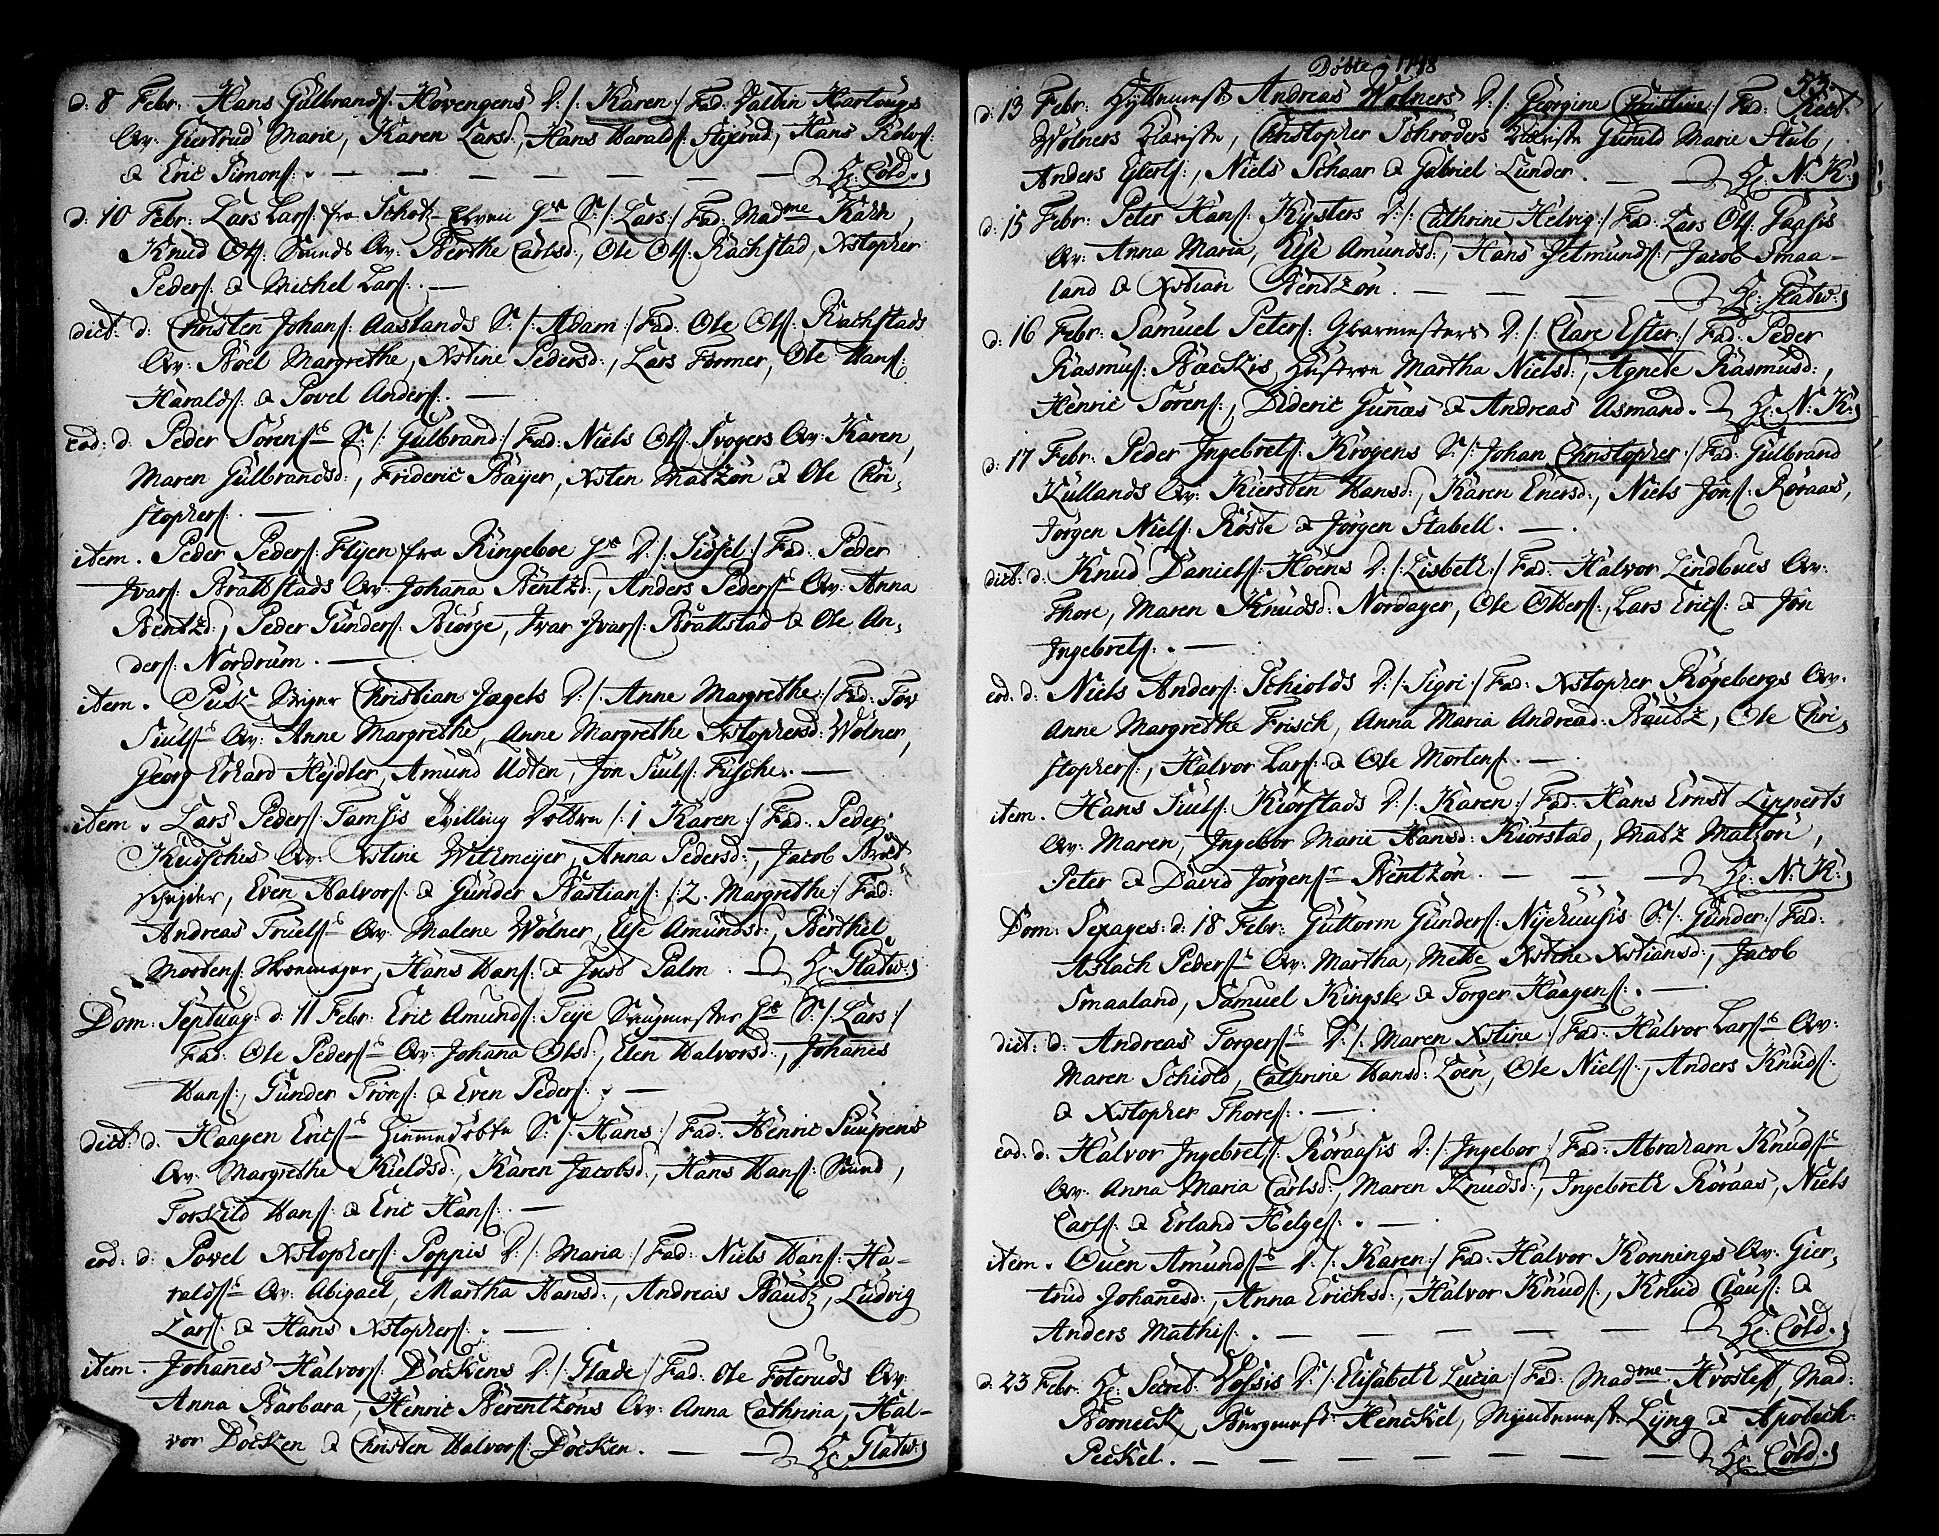 d: 8 Febr: Hans Gülbrands: Hovengens D: /: Karen :/ Fad: Valtin Hartougs
Qv: Giertrud Marie, Karen Larsd:, Hans Harals: Stixrud, Hans Rolvs:
& Eric Simons: . — Hr: Cold.
d: 10 Febr: Lars Lars: fra Schotz Elven S: /: Lars :/ Fad: Madme Karn,
Knud Ols: Sunds Qv: Berthe Carlsd:, Ole Ols: Rachstad, Xstopher
Peders: & Michel Lars: . —
dict: d: Christen Johans: Aaslands S: /: Adam :/ Fad: Ole Ols: Rachstads
Qv: Boel Margrethe, Xstine Pedersd:, Lars Former, Ole Hans:
Harals: & Povel Anders: . —
eod: d: Peder Sörens: S: /: Gülbrand :/ Fad: Niels Ols: Svogers Qv: Karen,
Maren Gülbrandsd:, Frideric Bayer, Xsten Matzön & Ole Chri-
stophers: . —
item. Peder Peders: Flyen fra Ringeboe D: /: Sidsel :/ Fad: Peder
Ivars: Brattstads Qv: Johana Bentzd:, Anders Peders: Qv: Anna
Bentzd:, Peder Gunders: Biörge, Ivar Ivars: Brattstad & Ole An-
ders: Nordrum. —
item. Pusk- Christian Jægels D: /: Anne Margrethe :/ Fad: Tov
Siuls: Qv: Anne Margrethe, Anne Margrethe Xstophersd: Wölner,
Georg Erhard Heydler, Amund Udten, Jon Siuls: Fische. —
item. Lars Peders: Tamsis Tvilling Döttre /: 1 Karen :/ Fad: Peder
Kudschis Qv: Xstine Witzmeyer, Anna Pedersd:, Jacob Bret
schnider, Even Halvors: & Gunder Bastians: /: 2. Margrethe :/ Fad:
Andreas Truels: Qv: Malene Wölner, Else Amundsd:, Berthel
Mortens: , Hans Hans: & Just Palm. — Hr: Flatw:
Dom: Septuag: d: 11 Febr: Eric Amunds: Teye S: /: Lars :/
Fad: Ole Peders: Qv: Johana Olsd:, Elen Halvorsd:, Johanes
Hans:, Gunder Tröns: & Even Peders: . —
dict: d: Haagen Erics: S: /: Hans :/ Fad: Henric Suupens
Qv: Margrethe Kieldsd:, Karen Jacobsd:, Hans Hans: Sund,
Torskild Hans: & Eric Hans: . —
eod: d: Povel Xstophers: Poppis D: /: Maria :/ Fad: Niels Hans: Ha-
ralds: Qv: Abigael, Martha Hansd:, Andreas Bautz, Ludvig
Lars: & Hans Xstophers: . —
item. Johanes Halvors: Dockens D: /: Flade :/ Fad: Ole Foteruds Qv:
Anna Barbara, Henric Berentzöns Qv: Anna Cathrina, Hal-
vor Docken & Christen Halvors: Docken. — Hr: Flatw:
Döbte 1748 53.
d: 13 Febr: Hyttemest: Andreas Wölners D: /: Georgine Christine :/ Fad:
Wölners Kiæreste, Christopher Schröders Kiæreste Gunild Marie Stub,
Anders Eylerts:, Niels Schaar & Gabriel Lunder. — Hr: N. K:
d: 15 Febr: Peter Hans: Kysters D: /: Cathrine Helvig :/ Fad: Lars Ols: Faasis
Qv: Anna Maria, Else Amundsd:, Hans Getmunds:, Jacob Smaa-
land & Xstian Bentzön. — Hr: Flatw:
d: 16 Febr: Samuel Peters: Glarmesters D: /: Clare Ester :/ Fad: Peder
Rasmus: Backis Hustroe Martha Nielsd:, Agnete Rasmusd:,
Henric Sörens:, Dideric Gunæs & Andreas Asmand. Hr: N. K:
d: 17 Febr: Peder Ingebrets: Krogens S: /: Johan Christopher :/ Fad: Gulbrand
Kullands Qv: Kiersten Hansd:, Karen Enersd:, Niels Jons: Röraas,
Jörgen Niels: Roste & Jörgen Stabell. —
dict: d: Knud Daniels: Hoens D: /: Lisbeth :/ Fad: Halvor Lindbues Qv:
Thore, Maren Knudsd: Nordager, Ole Otters:, Lars Erics: & Jon
Ingebrets: . —
eod: d: Niels Anders: Schiolds D: /: Sigri :/ Fad: Xstopher Rögebergs Qv:
Anne Margrethe Frisch, Anna Maria Andread: Bautz, Ole Chri-
stophers:, Halvor Lars: & Ole Mortens: . —
item. Hans Siuls: Kiörstads D: /: Karen :/ Fad: Hans Ernst Lipperts
Qv: Maren, Ingebor Marie Hansd: Kiörstad, Matz Matzön,
Peter & David Jörgens: Bentzön. — Hr: N. K:
Dom: Sexages: d: 18 Febr: Guttorm Gunders: Nyehuusis S: /: Gunder :/ Fad:
Aslach Peders: Qv: Martha, Mette Xstine Xstiansd:, Jacob
Smaaland, Samuel Kingsle & Torger Haagens: . —
dict: d: Andreas Torgers: D: /: Maren Xstine :/ Fad: Halvor Lars: Qv:
Maren Schiold, Cathrine Hansd: Loen, Ole Niels:, Anders Knuds:
& Xstopher Thores: . —
eod: d: Halvor Ingebrets: Röraasis D: /: Ingebor :/ Fad: Abraham Knuds:
Qv: Anna Maria Carlsd:, Maren Knudsd:, Ingebreth Röraas, Niels
Carls: & Erland Helges: . —
item. Ouen Amunds: D: /: Karen :/ Fad: Halvor Konnings Qv: Gier-
trud Johanesd:, Anna Erichsd:, Halvor Knuds:, Knud Claus: &
Anders Mathis: . — Hr: Cold.
d: 23 Febr: Hr: Secret: Vossis D: /: Elisabeth Lucia :/ Fad: Madme Hvoslef, Mad:
Borneck, Burgmest: Henckel, Myntemest: Lyng & Apoteck:
Peckel. — Hr: Cold.